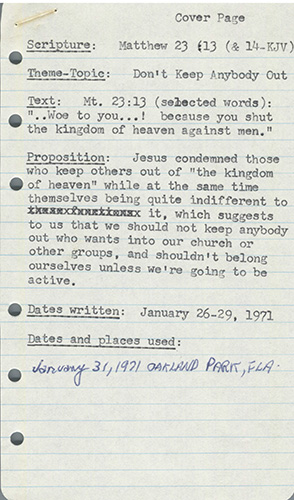 Cover Page
Scripture: Matthew 23 :13 (& 14-KJV)
Theme-Topic: Don't Keep Anybody Out
Text: Mt. 23:13 (selected words):
"..Woe to you...! because you shut
the kingdom of heaven against men."
Proposition: Jesus condemned those
who keep others out of "the kingdom
of heaven" while at the same time
themselves being quite indifferent to
it, which suggests
to us that we should not keep anybody
out who wants into our church or
other groups, and shouldn't belong
ourselves unless we're going to be
active.
Dates written: January 26-29, 1971
Dates and places used:
January 31, 1971 OAKLAND PARK, FLA.